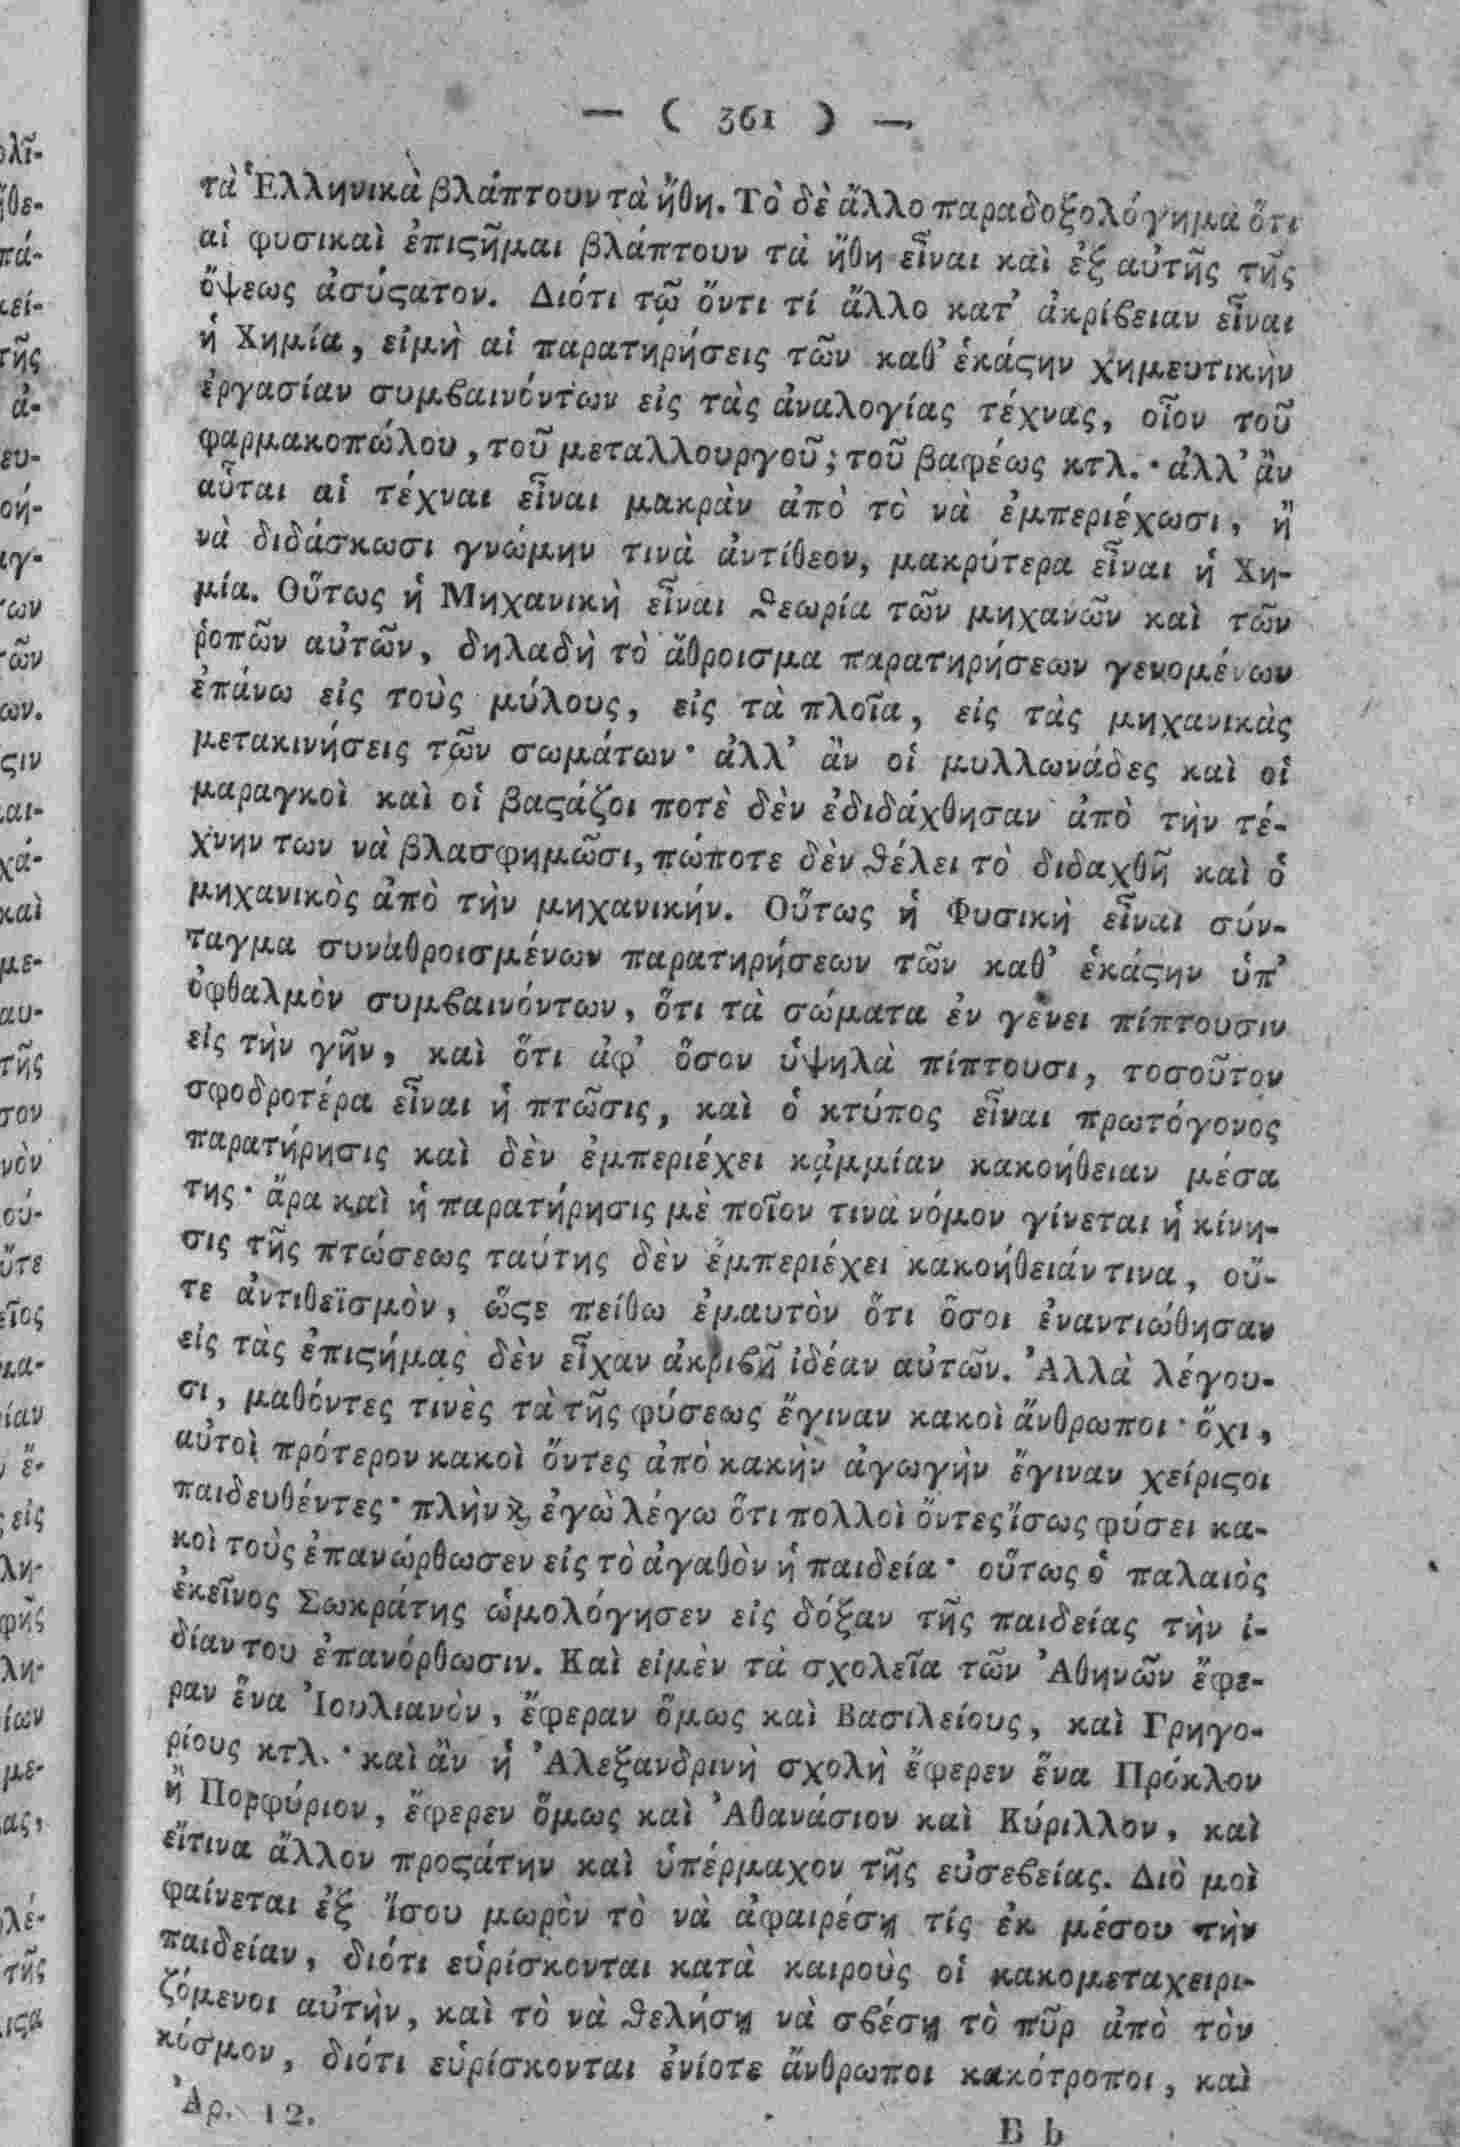 — ( 361 ) —
τὰ Ἑλληνικὰ βλάπτουν τὰ ἤθη. Τὸ δὲ ἄλλο παραδοξολόγημα ὅτι
αἱ φυσικαὶ ἐπιϛῆμαι βλάπτουν τὰ ἤθη εἶναι καὶ ἐξ αὐτῆς τῆς
ὄψεως ἀσύϛατον. Διότι τῷ ὄντι τί ἄλλο κατ' ἀκρίβειαν εἶναι
ἡ Χημία, εἰμὴ αἱ παρατηρήσεις τῶν καθ' ἑκάϛην χημευτικὴν
ἐργασίαν συμβαινόντων εἰς τὰς ἀναλογίας τέχνας, οἷον τοῦ
φαρμακοπώλου, τοῦ μεταλλουργοῦ; τοῦ βαφέως κτλ.· ἀλλ' ἂν
αὗται αἱ τέχναι εἶναι μακρὰν ἀπὸ τὸ νὰ ἐμπεριέχωσι, ἢ
νὰ διδάσκωσι γνώμην τινὰ ἀντίθεον, μακρύτερα εἶναι ἡ Χη-
μία. Οὕτως ἡ Μηχανικὴ εἶναι ϑεωρία τῶν μηχανῶν καὶ τῶν
ῥοπῶν αὐτῶν, δηλαδὴ τὸ ἄθροισμα παρατηρήσεων γενομένων
ἐπάνω εἰς τοὺς μύλους, εἰς τὰ πλοῖα, εἰς τὰς μηχανικὰς
μετακινήσεις τῶν σωμάτων· ἀλλ' ἂν οἱ μυλλωνάδες καὶ οἱ
μαραγκοὶ καὶ οἱ βαϛάζοι ποτὲ δὲν ἐδιδάχθησαν ἀπὸ τὴν τέ-
χνην των νὰ βλασφημῶσι, πώποτε δὲν ϑέλει τὸ διδαχθῆ καὶ ὁ
μηχανικὸς ἀπὸ τὴν μηχανικήν. Οὕτως ἡ Φυσικὴ εἶναι σύν-
ταγμα συναθροισμένων παρατηρήσεων τῶν καθ' ἑκάϛην ὑπ'
ὀφθαλμὸν συμβαινόντων, ὅτι τὰ σώματα ἐν γένει πίπτουσιν
εἰς τὴν γῆν, καὶ ὅτι ἀφ' ὅσον ὑψηλὰ πίπτουσι, τοσοῦτον
σφοδροτέρα εἶναι ἡ πτῶσις, καὶ ὁ κτύπος εἶναι πρωτόγονος
παρατήρησις καὶ δὲν ἐμπεριέχει κᾀμμίαν κακοήθειαν μέσα
της· ἄρα καὶ ἡ παρατήρησις μὲ ποῖον τινὰ νόμον γίνεται ἡ κίνη-
σις τῆς πτώσεως ταύτης δὲν ἐμπεριέχει κακοήθειάν τινα, οὔ-
τε ἀντιθεϊσμὸν, ὥϛε πείθω ἐμαυτὸν ὅτι ὅσοι ἐναντιώθησαν
εἰς τὰς ἐπιϛήμας δὲν εἶχαν ἀκριβῆ ἰδέαν αὐτῶν. Ἀλλὰ λέγου-
σι, μαθόντες τινὲς τὰ τῆς φύσεως ἔγιναν κακοὶ ἄνθρωποι· ὄχι,
αὐτοὶ πρότερον κακοὶ ὄντες ἀπὸ κακὴν ἀγωγὴν ἔγιναν χείριϛοι
παιδευθέντες· πλὴν ϗ ἐγὼ λέγω ὅτι πολλοὶ ὄντες ἴσως φύσει κα-
κοὶ τοὺς ἐπανώρθωσεν εἰς τὸ ἀγαθὸν ἡ παιδεία· οὕτως ὁ παλαιὸς
ἐκεῖνος Σωκράτης ὡμολόγησεν εἰς δόξαν τῆς παιδείας τὴν ἰ-
δίαν του ἐπανόρθωσιν. Καὶ εἰμὲν τὰ σχολεῖα τῶν Ἀθηνῶν ἔφε-
ραν ἕνα Ἰουλιανὸν, ἔφεραν ὅμως καὶ Βασιλείους, καὶ Γρηγο-
ρίους κτλ.· καὶ ἂν ἡ Ἀλεξανδρινὴ σχολὴ ἔφερεν ἕνα Πρόκλον
ἢ Πορφύριον, ἔφερεν ὅμως καὶ Ἀθανάσιον καὶ Κύριλλον, καὶ
εἴτινα ἄλλον προϛάτην καὶ ὑπέρμαχον τῆς εὐσεβείας. Διὸ μοὶ
φαίνεται ἐξ ἴσου μωρὸν τὸ νὰ ἀφαιρέσῃ τίς ἐκ μέσου τὴν
παιδείαν, διότι εὑρίσκονται κατὰ καιροὺς οἱ κακομεταχειρι-
ζόμενοι αὐτὴν, καὶ τὸ νὰ ϑελήσῃ νὰ σβέσῃ τὸ πῦρ ἀπὸ τὸν
κόσμον, διότι εὑρίσκονται ἐνίοτε ἄνθρωποι κακότροποι, καὶ
Ἀρ. 12.
B b